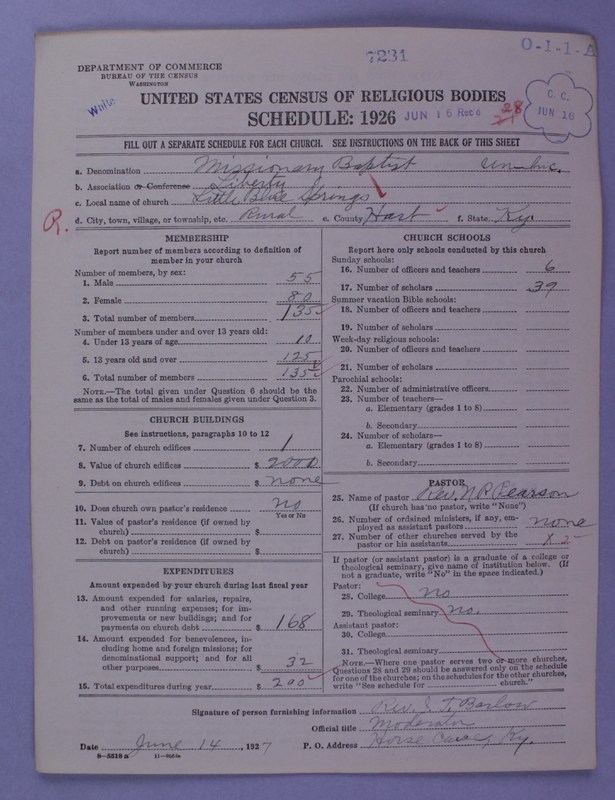 7231
O-1-1-A
DEPARTMENT OF COMMERCE
BUREAU OF THE CENSUS
WASHINGTON
White
UNITED STATES CENSUS OF RELIGIOUS BODIES
SCHEDULE: 1926
JUN 16 Rec'd
28
21
C. C.
JUN 16
FILL OUT A SEPARATE SCHEDULE FOR EACH CHURCH. SEE INSTRUCTIONS ON THE BACK OF THIS SHEET
a. Denomination Missionary Baptist Un-Inc.
b. Association or Conference Liberty
c. Local name of church Little Blue Springs
R. d. City, town, village, or township, etc. Rural e. County Hart f. State Ky.
MEMBERSHIP
Report number of members according to definition of
member in your church
Number of members, by sex:
1. Male 55
2. Female 80
3. Total number of members 135
Number of members under and over 13 years old:
4. Under 13 years of age 10
5. 13 years old and over 125
6. Total number of members 135
NOTE.—The total given under Question 6 should be the
same as the total of males and females given under Question 3.
CHURCH BUILDINGS
See instructions, paragraphs 10 to 12
7. Number of church edifices 1
8. Value of church edifices $ 2000
9. Debt on church edifices $ none
10. Does church own pastor's residence no
Yes or No
11. Value of pastor's residence (if owned by
church) $
12. Debt on pastor's residence (if owned by
church) $
EXPENDITURES
Amount expended by your church during last fiscal year
13. Amount expended for salaries, repairs,
and other running expenses; for im-
provements or new buildings; and for
payments on church debt $ 168
14. Amount expended for benevolences, in-
cluding home and foreign missions; for
denominational support; and for all
other purposes $ 32
15. Total expenditures during year $ 200
CHURCH SCHOOLS
Report here only schools conducted by this church
Sunday schools:
16. Number of officers and teachers 6
17. Number of scholars 39
Summer vacation Bible schools:
18. Number of officers and teachers
19. Number of scholars
Week-day religious schools:
20. Number of officers and teachers
21. Number of scholars
Parochial schools:
22. Number of administrative officers
23. Number of teachers—
a. Elementary (grades 1 to 8)
b. Secondary
24. Number of scholars—
a. Elementary (grades 1 to 8)
b. Secondary
PASTOR
25. Name of pastor Rev. N. P. Pearson
(If church has no pastor, write "None")
26. Number of ordained ministers, if any, em-
ployed as assistant pastors none
27. Number of other churches served by the
pastor or his assistants X 2
If pastor (or assistant pastor) is a graduate of a college or
theological seminary, give name of institution below. (If
not a graduate, write "No" in the space indicated.)
Pastor:
28. College no
29. Theological seminary no.
Assistant pastor:
30. College
31. Theological seminary
NOTE.—Where one pastor serves two or more churches,
Questions 28 and 29 should be answered only on the schedule
for one of the churches; on the schedules for the other churches,
write "See schedule for church."
Signature of person furnishing information Rev. S. T. Barlow
Official title Moderator
Date June 14, 1927 P. O. Address Horse Cave, Ky.
8-5518 a